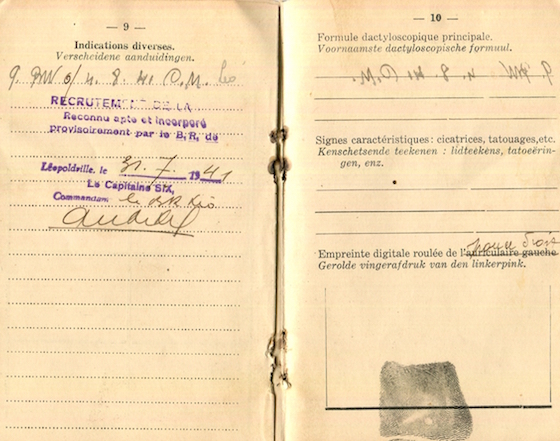 — 9 —
Indications diverses.
Verscheidene aanduidingen.
RECRUTEMENT DE LA
Reconnu apte et incorporé
provisoirement par le B.R. de
Léopoldville, le 31.7.1941
Le Capitaine SIX,
Commandant le
— 10 —
Formule dactyloscopique principale.
Voornaamste dactyloscopische formuul.
Signes caractéristiques : cicatrices, tatouages, etc.
Kenschetsende teekenen : lidteekens, tatoeërin-
gen, enz.
Empreinte digitale roulée de l'auriculaire gauche
Gerolde vingerafdruk van den linkerpink.